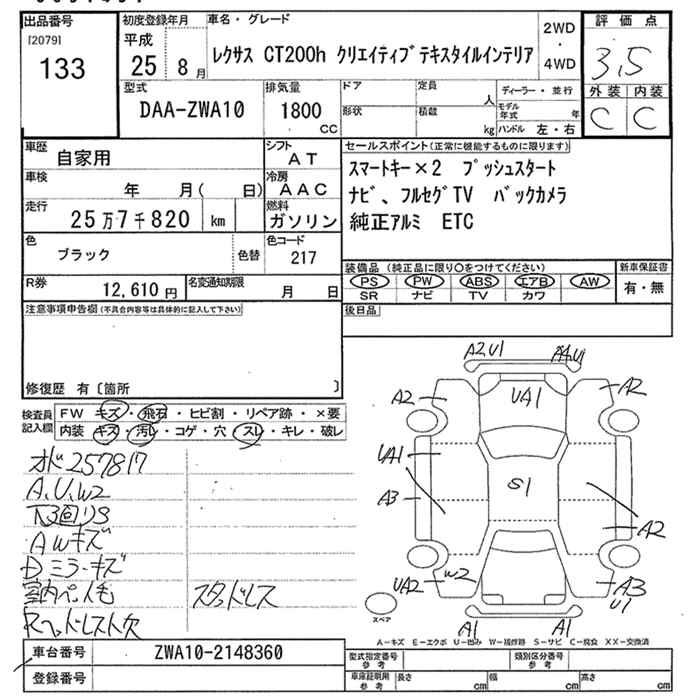 出品番号
[2079]
133
初度登録年月
平成
25 8月
車名・グレード
レクサス CT200h クリエイティブテキスタイルインテリア
2WD
・
4WD
評価点
3.5
外装 内装
C C
型式
DAA-ZWA10
排気量
1800
cc
ドア
定員
人
形状
積載
kg
ディーラー・並行
モデル年式 年
ハンドル 左・右
車歴
自家用
シフト
AT
車検
年 月( 日)
冷房
AAC
走行
25万7千820 km
燃料
ガソリン
色
ブラック
色替
色コード
217
R券
12,610円
名変通知期限
月 日
セールスポイント(正常に機能するものに限ります)
スマートキー×2 プッシュスタート
ナビ、フルセグTV バックカメラ
純正アルミ ETC
装備品(純正品に限り○をつけてください)
新車保証書
PS PW ABS エアB AW
SR ナビ TV カワ
有・無
注意事項申告欄(不具合内容等は具体的に記入して下さい)
後日品
修復歴 有〔箇所 〕
検査員記入欄
FW キズ・飛石・ヒビ割・リペア跡・×要
内装 キズ・汚レ・コゲ・穴・スレ・キレ・破レ
オド257817
A、U、W2
下回りS
AWキズ
Dミラーキズ
室内ペン、毛
スタッドレス
Rヘッドレスト欠
A2U1
A4U1
A2
UA1
A2
UA1
S1
A3
A2
UA2
W2
A3
U1
A1
A1
スペア
A-キズ E-エクボ U-凹み W-補修跡 S-サビ C-腐食 XX-交換済
車台番号
ZWA10-2148360
登録番号
型式指定番号
参考
類別区分番号
参考
車庫証明用
参考
長さ cm
幅 cm
高さ cm